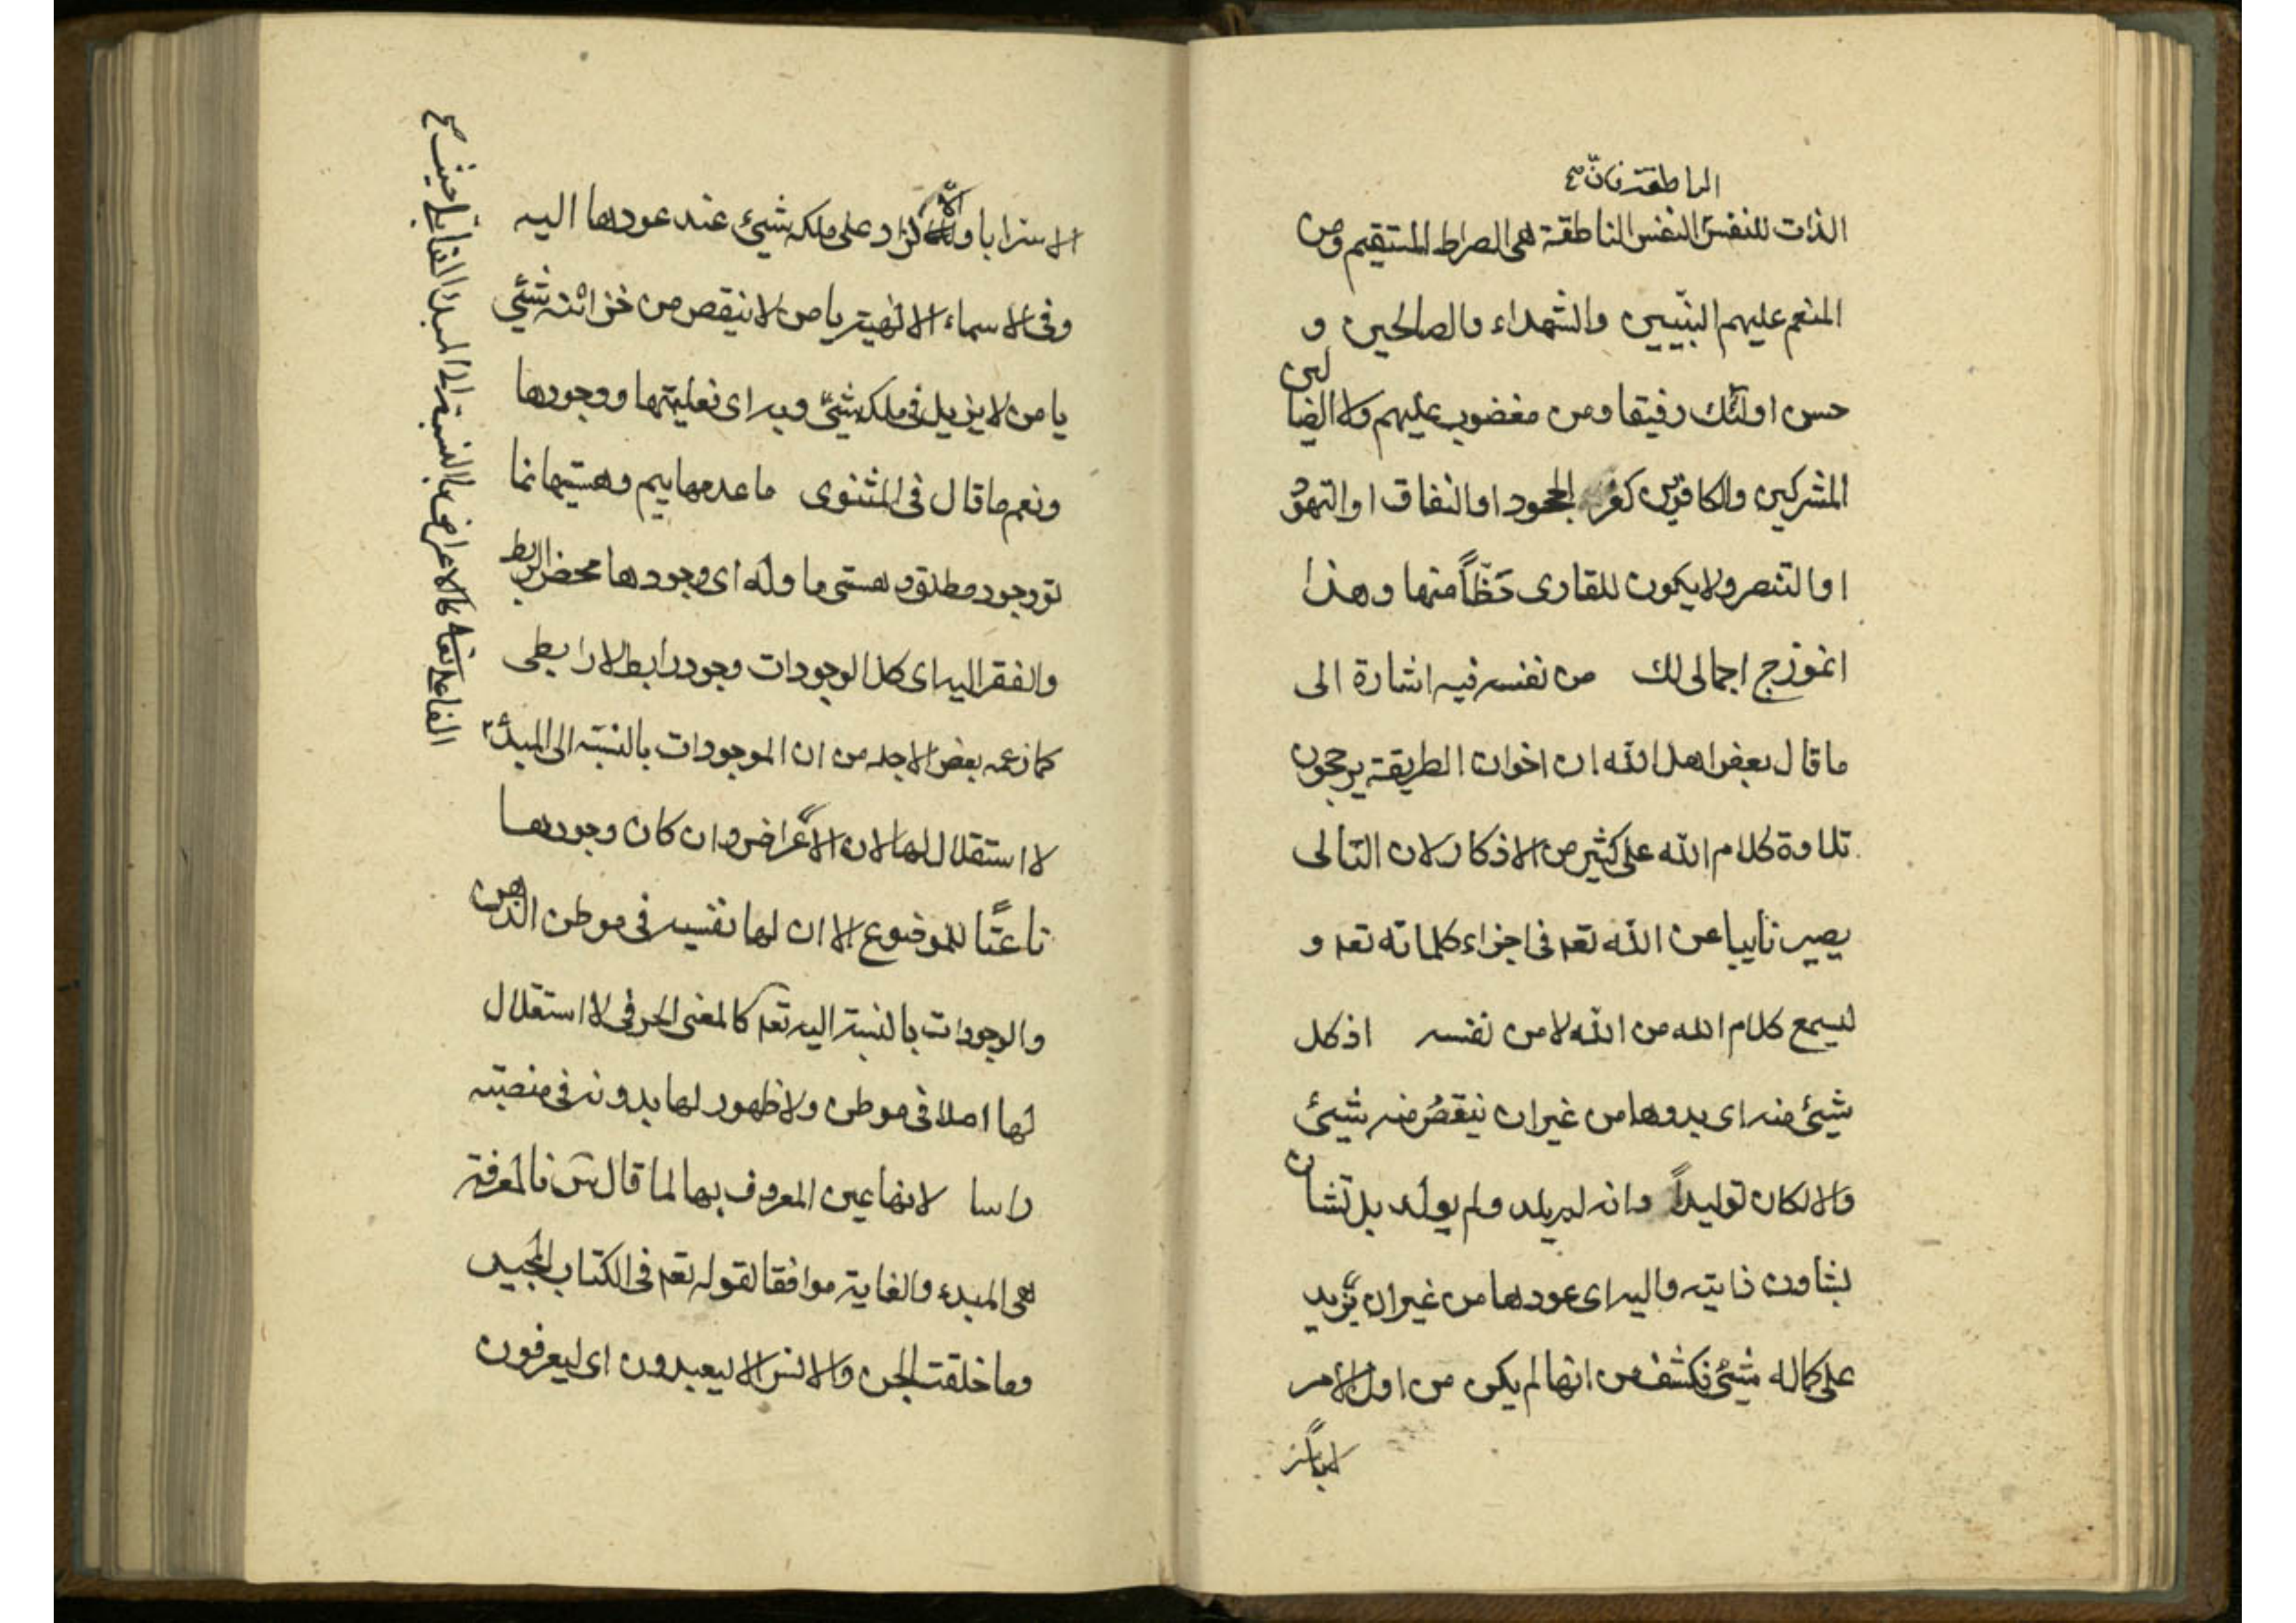 الناطقة فانّ صح
الذات للنفس النفس الناطقة هى الصراط المستقيم ومن
المنعم عليهم النبّيين والشهداء والصالحين و
حسن اولئك رفيقا ومن مغضوب عليهم ولا الضالين
المشركين والكافرين كفر الجحود او النفاق او التهوّد
او التنصر ولا يكون للقارى حَظّاً منها وهذا
انموزج اجمالى لك من نفسه فيه اشارة الى
ما قال بعض اهل الله ان اخوان الطريقة يرجحون
تلاوة كلام الله على كثير من الاذكار لان التالى
يصير نايبا عن الله تعه فى اجزاء كلماته تعه و
ليسمع كلام الله من الله لا من نفسه اذ كل
شيئ منه اى بدوها من غير ان ينقصُ منه شيئ
والا لكان توليداً وانه لم يلد ولم يولد بل تشان
بشاون ذايته واليه اى عودها من غير ان يزيد
على كماله شيئ فكشف من انها لم يكن من اول الامر
الا سرابا
الا سرابا والّا لزاد على ملكه شيئ عند عودها اليه
وفى الاسماء الالهية يا من لا ينقص من خزائنه شيئ
يا من لا يزيد فى ملكه شيئ وبه اى فعليتها ووجودها
ونعم ما قال فى المثنوى ما عدمهاييم وهستيها نما
تو وجود مطلق و هستى ما وله اى وجودها محض الربط
والفقر اليه اى كل الوجودات وجود رابط لا رابطى
كما زعمه بعض الاجله من ان الموجودات بالنسبة الى المبدٔ
لا استقلال لها لان الاعراض وان كان وجودها
ناعتًا للموضوع الا ان لها نفسيه فى موطن الذهن
والوجودات بالنسبة اليه تعه كالمعنى الحرفى لا استقلال
لها اصلا فى موطن ولا ظهور لها بدونه فى منصبّه
راسا لانها عين المعروف بها لما قال فالمعرفة
هى المبدء والغاية موافقا لقوله تعه فى الكتاب المجيد
وما خلقت الجن والانس الا ليعبدون اى ليعرفون
الفاعل تعا كالاعراض بالنسبة الى المبدٔ القابلى حيث صح